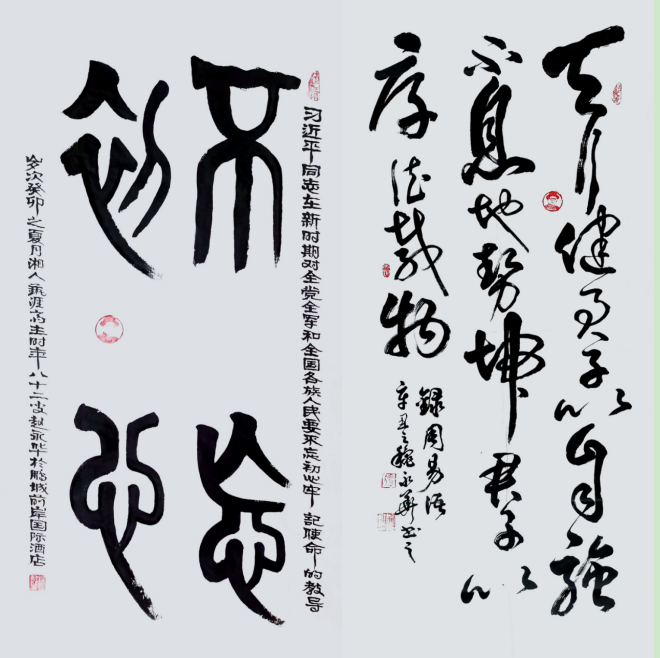 天行健君子以自強
不息地勢坤君子以
厚德載物
録周易语
辛丑之永華书之
习近平同志在新时期对全党全军和全国各族人民要不忘初心牢记使命的教导
不忘
初心
岁次癸卯之夏月湘人斋主时年八十二岁赵永华於鹏城前岸国际酒店